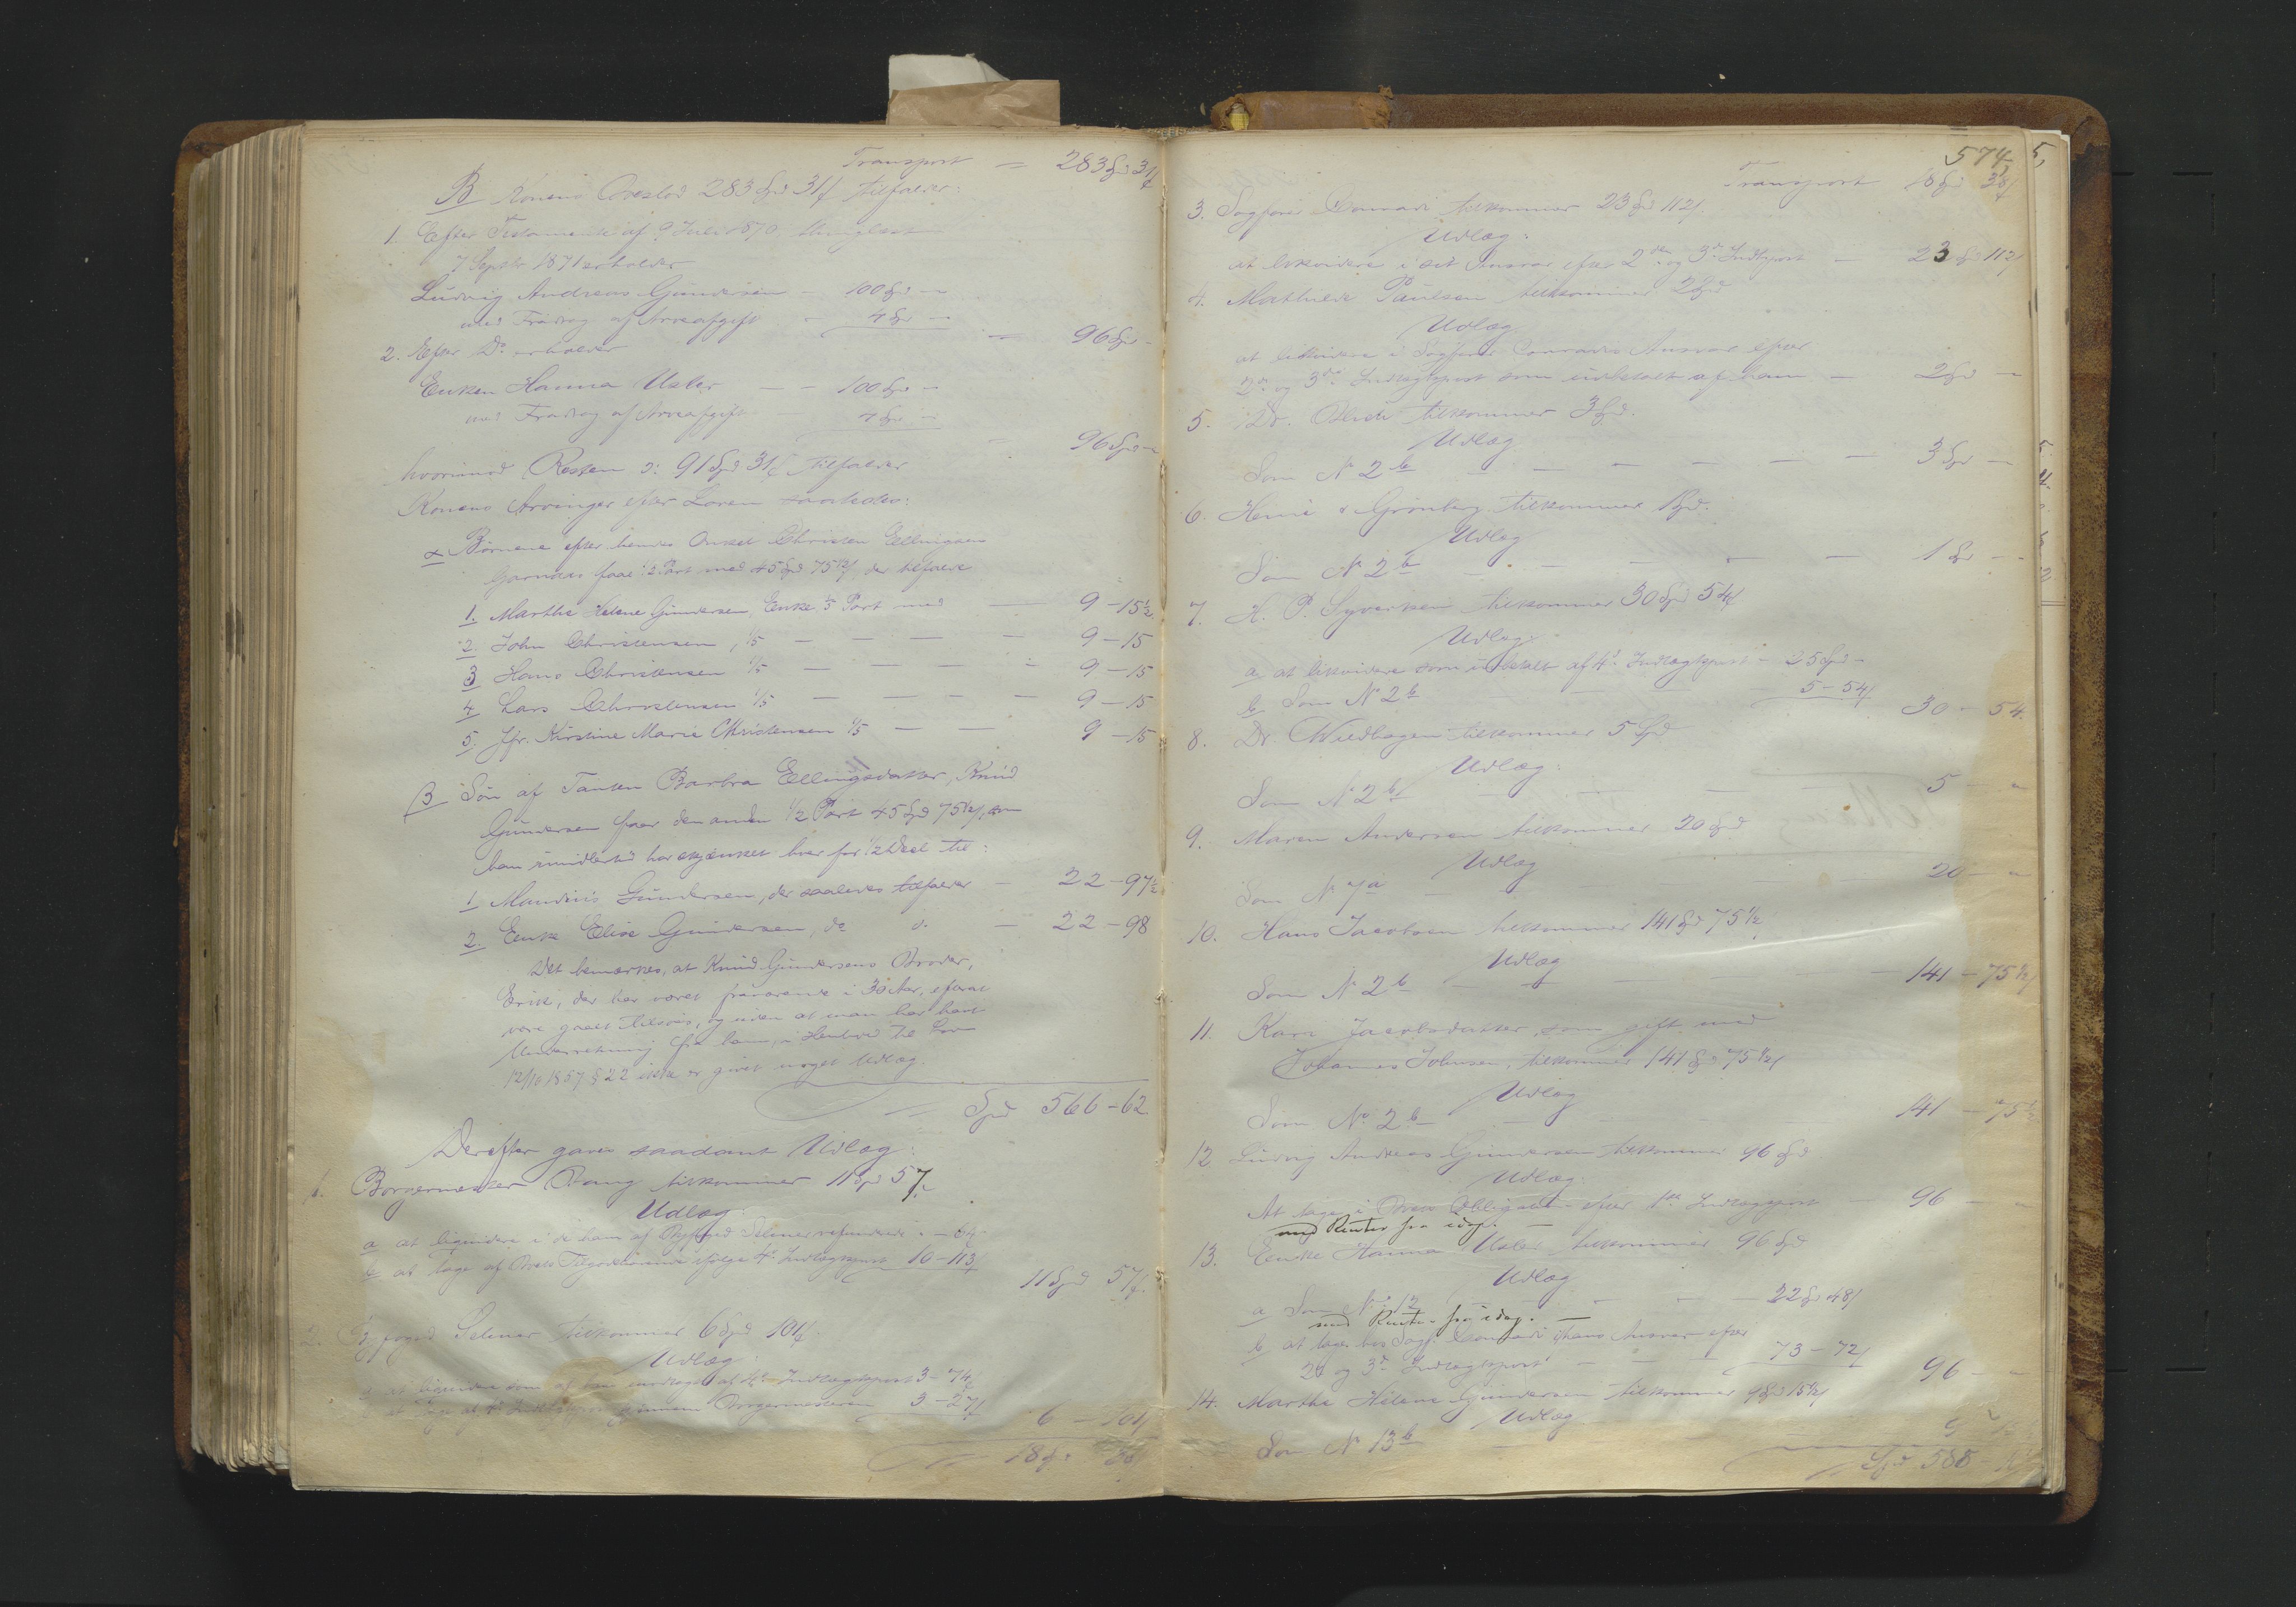 Transport — 283 Spd 31 ß
B Konens Arvelod 283 Spd 31 ß tilfalder:
1. Efter Testamente af 9 Juli 1870, thinglæst
7 Septbr 1871 erholder
Ludvig Andreas Gundersen — 100 Spd —
med Fradrag af Arveafgift — 4 Spd —
96 Spd —
2. Efter Do erholder
Enken Hanna Usler — — 100 Spd —
med Fradrag af Arveafgift — 4 Spd —
96 Spd —
hvorimod Resten ɔ: 91 Spd 31 ß tilfalder
Konens Arvinger efter Loven saaledes:
α Børnene efter hendes Onkel Christen Ellingsen
Garnæs faar ½ Part med 45 Spd 75½ ß, der tilfalder
1. Marthe Helene Gundersen, Enke ⅕ Part med — 9 – 15½
2. John Christensen, ⅕ — — — — 9 – 15
3 Hans Christensen ⅕ — — — — 9 – 15
4 Lars Christensen ⅕ — — — — 9 – 15
5. Jfr. Kirstine Marie Christensen ⅕ — — 9 – 15
β Søn af Tanten Barbra Ellingsdatter, Knud
Gundersen faar den anden ½ Part 45 Spd 75½ ß, som
han imidlertid har skjænket hver for ½ Deel til:
1 Mauritis Gundersen, der saaledes tilfalder — 22 – 97½
2. Enke Elise Gundersen, do do — 22 – 98
Det bemærkes, at Knud Gundersens Broder,
Erik, der har været fraværende i 30 Aar, efter at
være gaaet tilsøes, og uden at man har havt
Underretning fra ham, i Henhold til Lov
12/10 1857 § 22 ikke er givet noget Udlæg.
Spd 566 – 62.
Derefter gaves saadant Udlæg:
1. Borgermester Bang tilkommer 11 Spd 57 ß
Udlæg:
a at liquidere i de ham af Byfoged Selmer refunderede — 64.
b at tage af Boets Tilgodehavende ifølge 4de Indtægtspost 10 – 113 ß
11 Spd 57 ß.
2. Byfoged Selmer tilkommer 6 Spd 101 ß.
Udlæg:
a at liquidere som af ham modtaget af 4de Indtægtspost 3 – 74 ß
b at tage af 4de Indtægtspost gjennem Borgermesteren 3 – 27 ß
6 – 101 ß
18 Spd 38 ß
574
Transport 18 Spd 38 ß
3. Sagfører Conradi tilkommer 23 Spd 112 ß
Udlæg:
at likvidere i sit Ansvar efter 2den og 3die Indtpost — 23 Spd 112 ß
4. Mathilde Paulsen tilkommer 2 Spd
Udlæg
at likvidere i Sagfører Conradis Ansvar efter
2den og 3die Indtægtspost som udbetalt af ham — 2 Spd —
5. Dr. tilkommer 3 Spd.
Udlæg
Som No 2 b — — — — — 3 Spd —
6. & Grønberg tilkommer 1 Spd.
Udlæg
Som No 2 b — — — — 1 Spd —
7. H. P. Syversen tilkommer 30 Spd 54 ß
Udlæg:
a at likvidere som udbetalt af 4de Indtægtspost — 25 Spd —
b Som No 2 b — 5 – 54 ß
30 – 54.
8. Dr. Wiedhagen tilkommer 5 Spd
Udlæg:
Som No 2 b — — — 5 — "
9. Maren Andersen tilkommer 20 Spd
Udlæg
Som No 7 a — — — 20 — "
10. Hans Jacobsen tilkommer 141 Spd 75½
Udlæg
Som No 2 b — — — — 141 – 75½ ß
11. Kari Jacobsdatter, som gift med
Johannes Johnsen, tilkommer 141 Spd 75½ ß
Udlæg
Som No 2 b — — — 141 – 75½
12 Ludvig Andreas Gundersen tilkommer 96 Spd
Udlæg:
At tage i Boets Obligation efter 1ste Indtægtspost — 96 — "
med Renter fra idag. —
13. Enke Hanna Usler tilkommer 96 Spd
Udlæg
a Som No 12 — — — 22 Spd 48 ß
med Renter fra idag. —
b at tage hos Sagf. Conradi i hans Ansvar efter
2d og 3d Indtægtspost — — — 73 – 72 ß
96 — "
14. Marthe Helene Gundersen tilkommer 9 Spd 15½ ß
Udlæg
Som No 13 b — 9
Spd 588